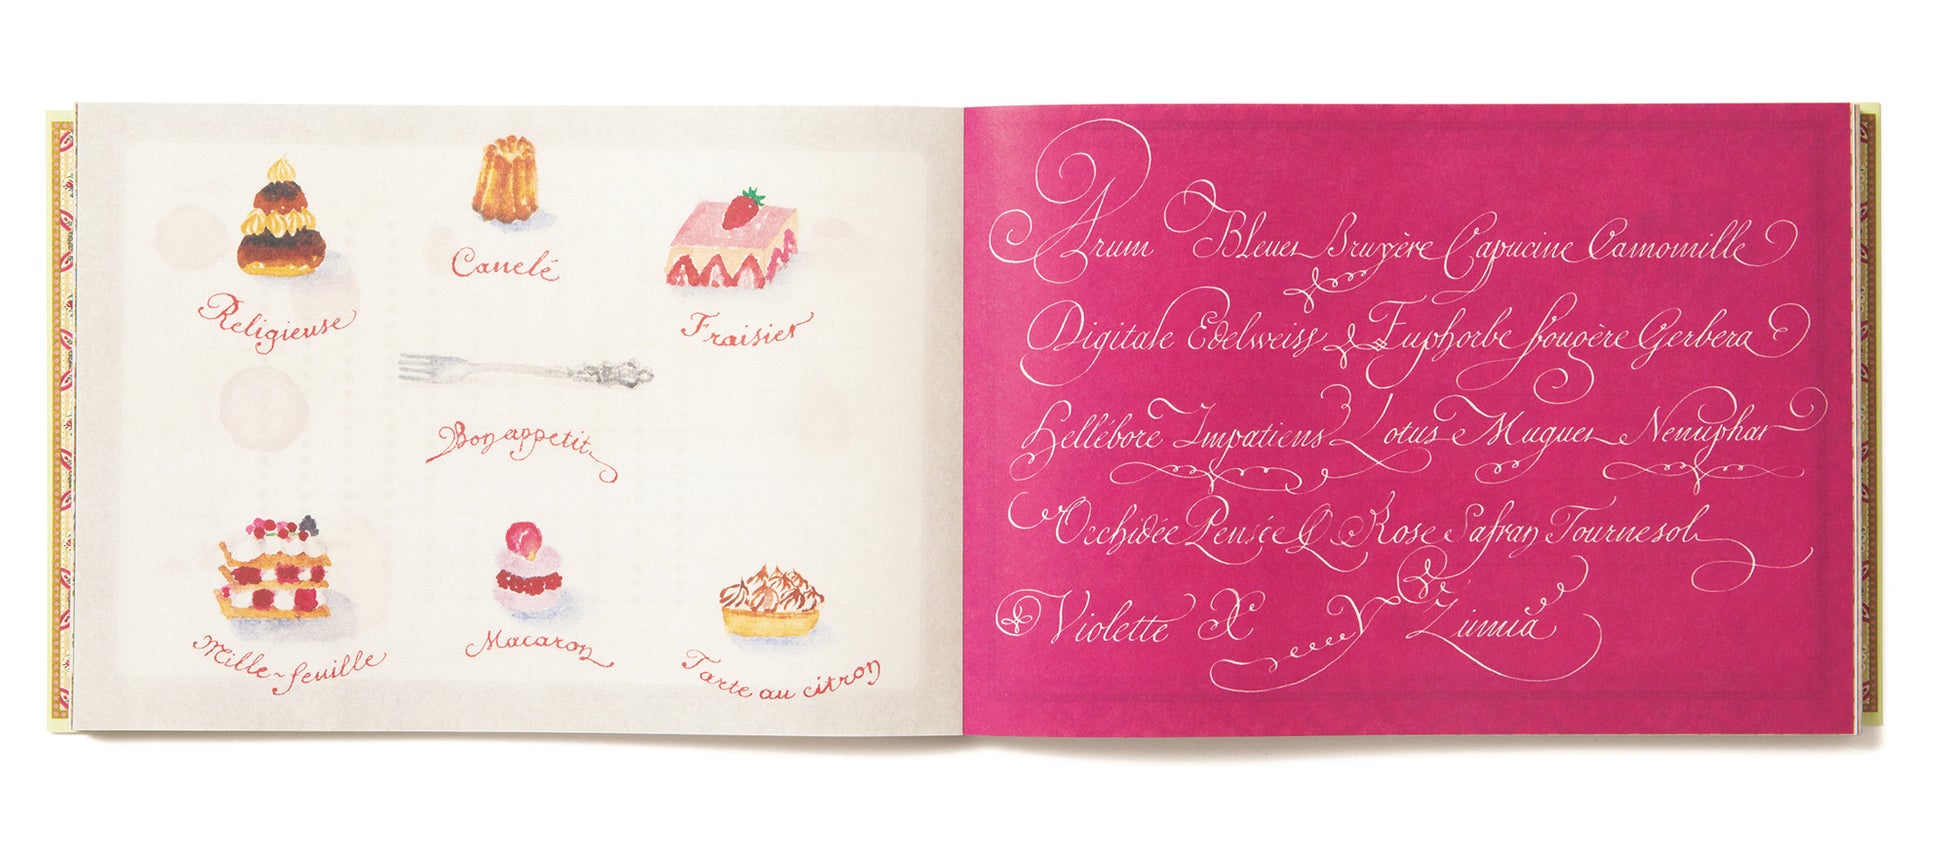 Religieuse
Canelé
Fraisier
Bon appetit
Mille-feuille
Macaron
Tarte au citron
Arum Bleuet Bruyère Capucine Camomille
Digitale Edelweiss Euphorbe Fougère Gerbera
Hellébore Impatiens Lotus Muguet Nenuphar
Orchidée Pensée Q Rose Safran Tournesol
Violette X Y Zinnia